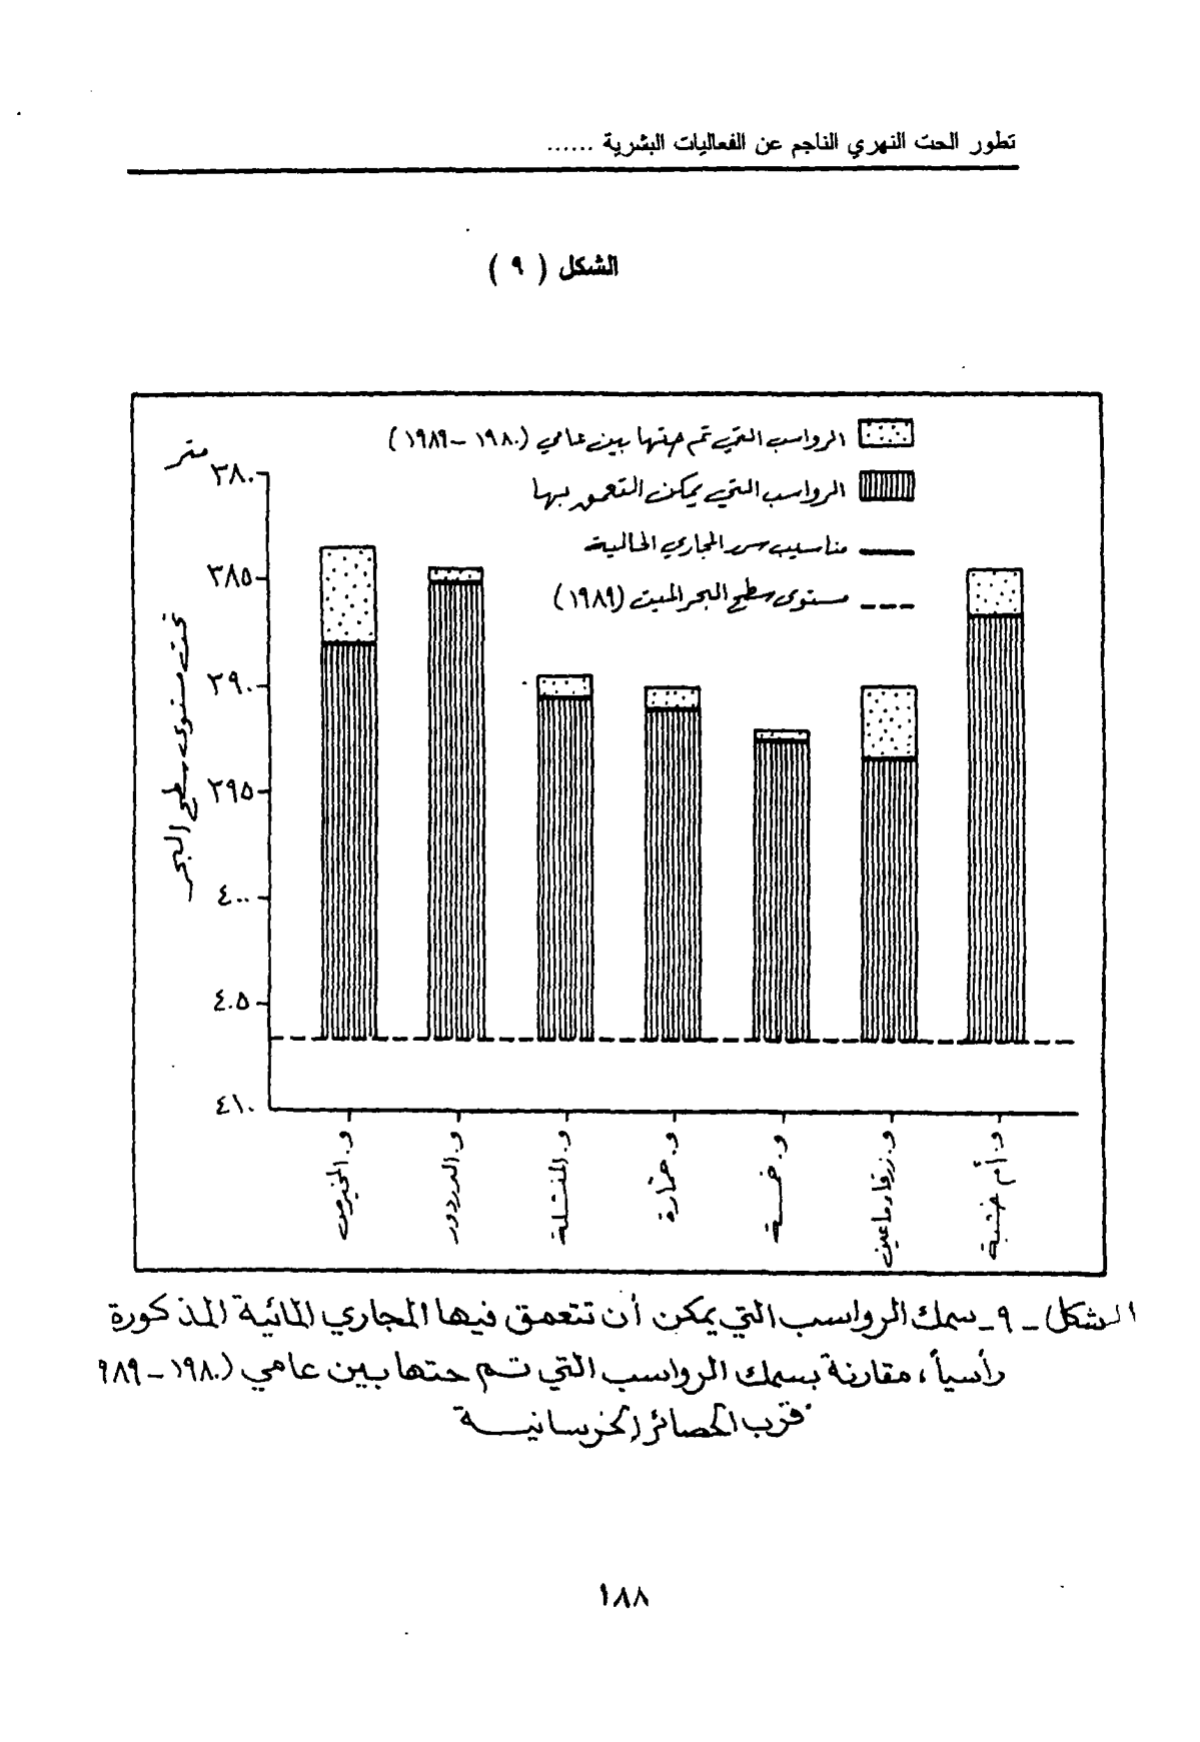 تطور الحت النهري الناجم عن الفعاليات البشرية ......
الشكل ( ٩ )
الرواسب التي تم حتها بين عامي (١٩٨٠ – ١٩٨٩)
الرواسب التي يمكن التعمق بها
مناسيب سرر المجاري الحالية
مستوى سطح البحر الميت (١٩٨٩)
متر
٣٨٠
٣٨٥
٣٩٠
٣٩٥
٤٠٠
٤٠٥
٤١٠
تحت مستوى سطح البحر
و.
و. الدردور
و. المنشلة
و. حمّارة
و.
و. زرقاء ماعين
و. أم خشبة
الشكل - ٩ - سمك الرواسب التي يمكن أن تتعمق فيها المجاري المائية المذكورة
رأسياً ، مقارنة بسمك الرواسب التي تم حتها بين عامي (١٩٨٠ – ٩٨٩
قرب الحصائر الخرسانية
١٨٨